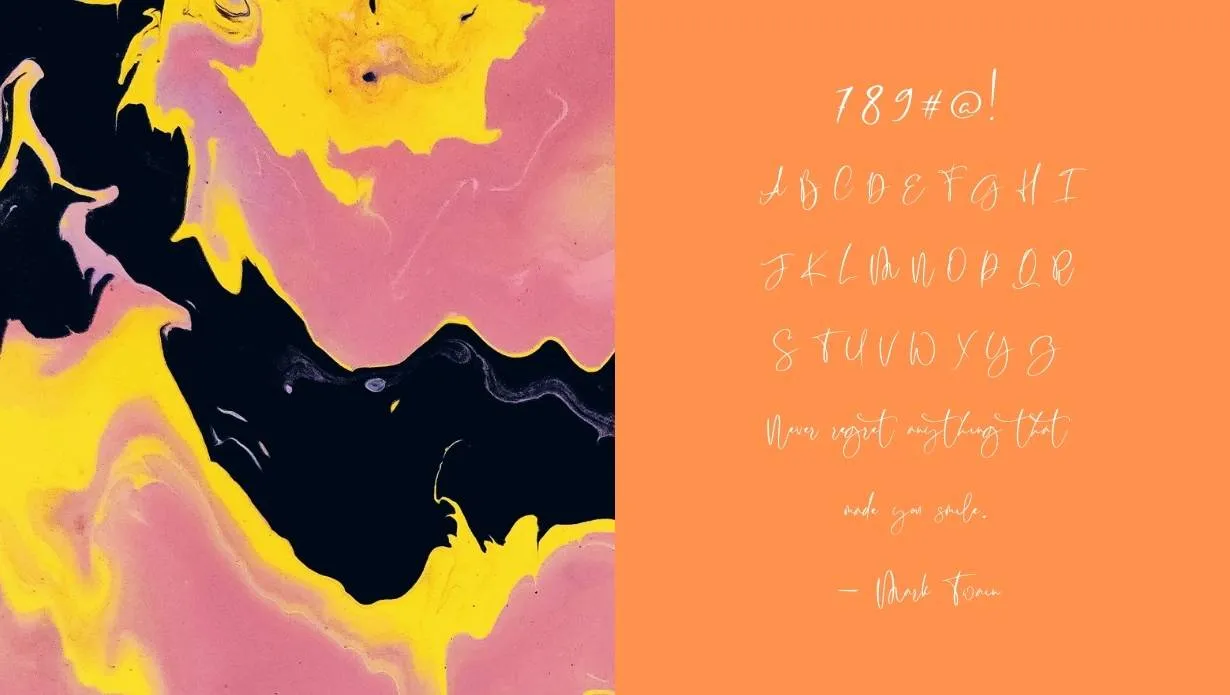 789#@!
A B C D E F G H I
J K L M N O P Q R
S T U V W X Y Z
Never regret anything that
made you smile.
— Mark Twain